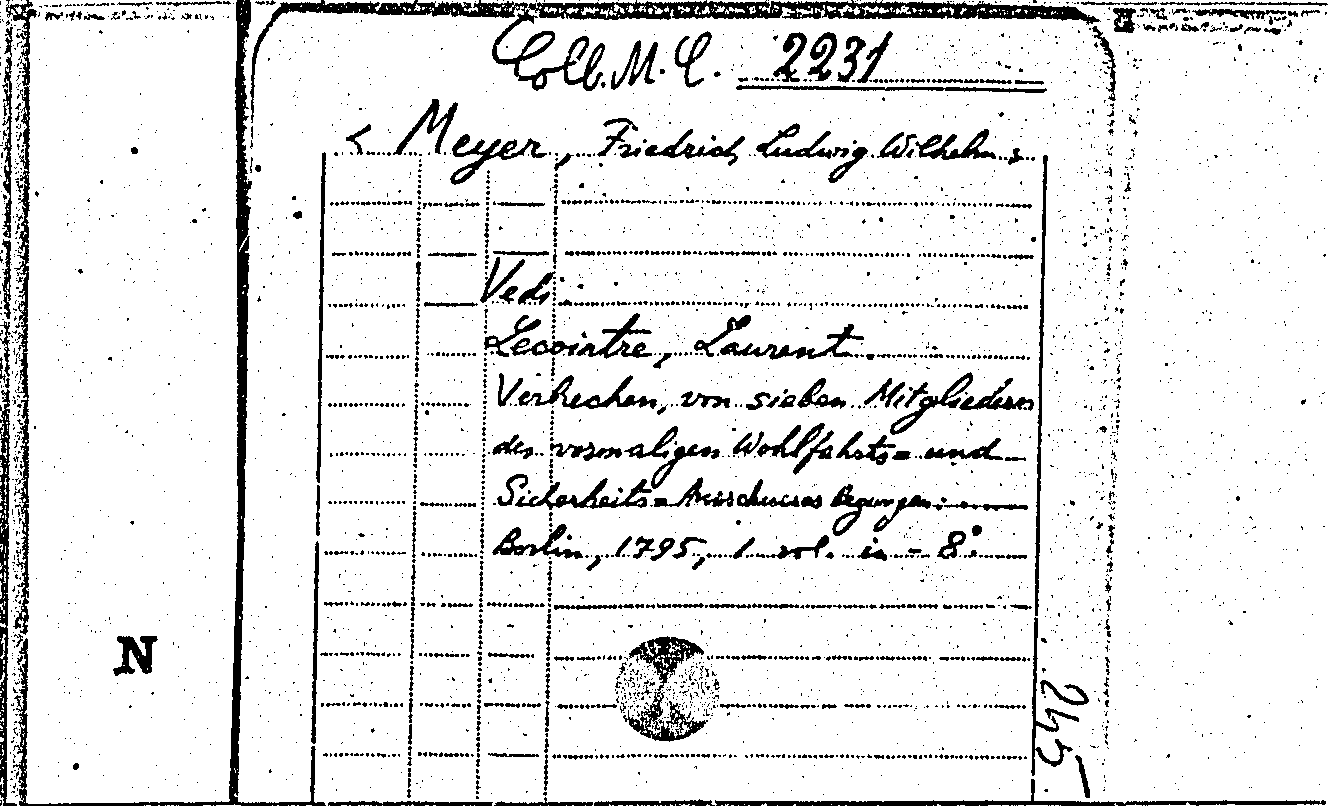 Coll. M. C. 2231
< Meyer, Friedrich Ludwig Wilhelm
Vedi:
Lecointre, Laurent.
Verbrechen, von sieben Mitgliedern
des vormaligen Wohlfahrts= und
Sicherheits=Ausschusses begangen.
Berlin, 1795, 1 vol. in-8°.
N
245